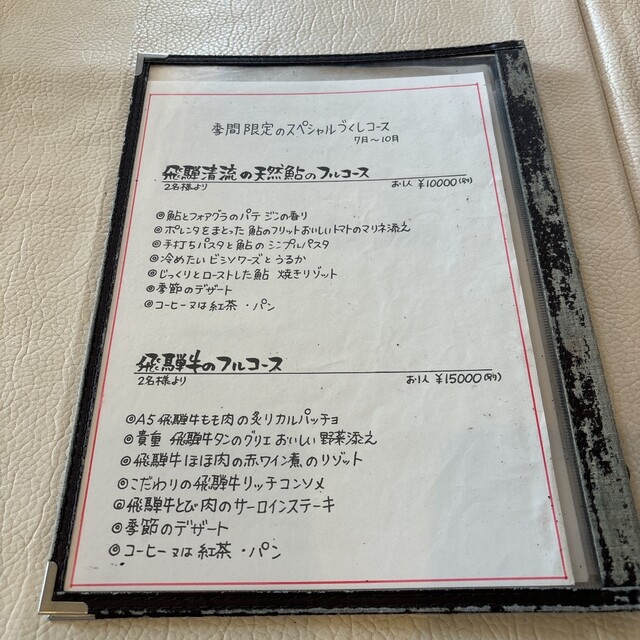 季間限定のスペシャルづくしコース
7月～10月
飛騨清流の天然鮎のフルコース
2名様より お1人 ¥10000(税別)
◎鮎とフォアグラのパテ ジンの香り
◎ポレンタをまとった 鮎のフリットおいしいトマトのマリネ添え
◎手打ちパスタと鮎の シンプルパスタ
◎冷めたい ビシソワーズと うるか
◎じっくりとローストした鮎 焼きリゾット
◎季節のデザート
◎コーヒー又は紅茶 ・パン
飛騨牛のフルコース
2名様より お1人 ¥15000(税別)
◎A5飛騨牛もも肉の炙りカルパッチョ
◎貴重 飛騨牛タンのグリエ おいしい 野菜添え
◎飛騨牛ほほ肉の赤ワイン煮のリゾット
◎こだわりの飛騨牛リッチコンソメ
◎飛騨牛とび肉のサーロインステーキ
◎季節のデザート
◎コーヒー又は 紅茶 ・パン